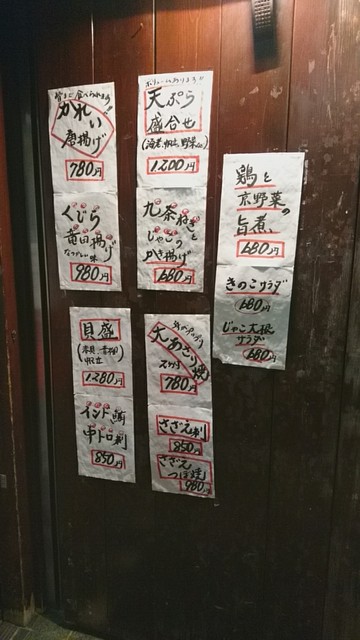 骨まで食べられます
かれい
唐揚げ
780円
くじら
竜田揚げ
なつかしい味
980円
ボリュームあります!!
天ぷら
盛合せ
(海老、帆立、野菜)
1,200円
九条ねぎと
じゃこの
かき揚げ
680円
鶏と
京野菜の
旨煮
680円
きのこサラダ
680円
じゃこ大根
サラダ
680円
貝盛
帆立
1,280円
インド鮪
中トロ刺
850円
大あさり焼
780円
さざえ刺
850円
さざえ
つぼ焼
980円